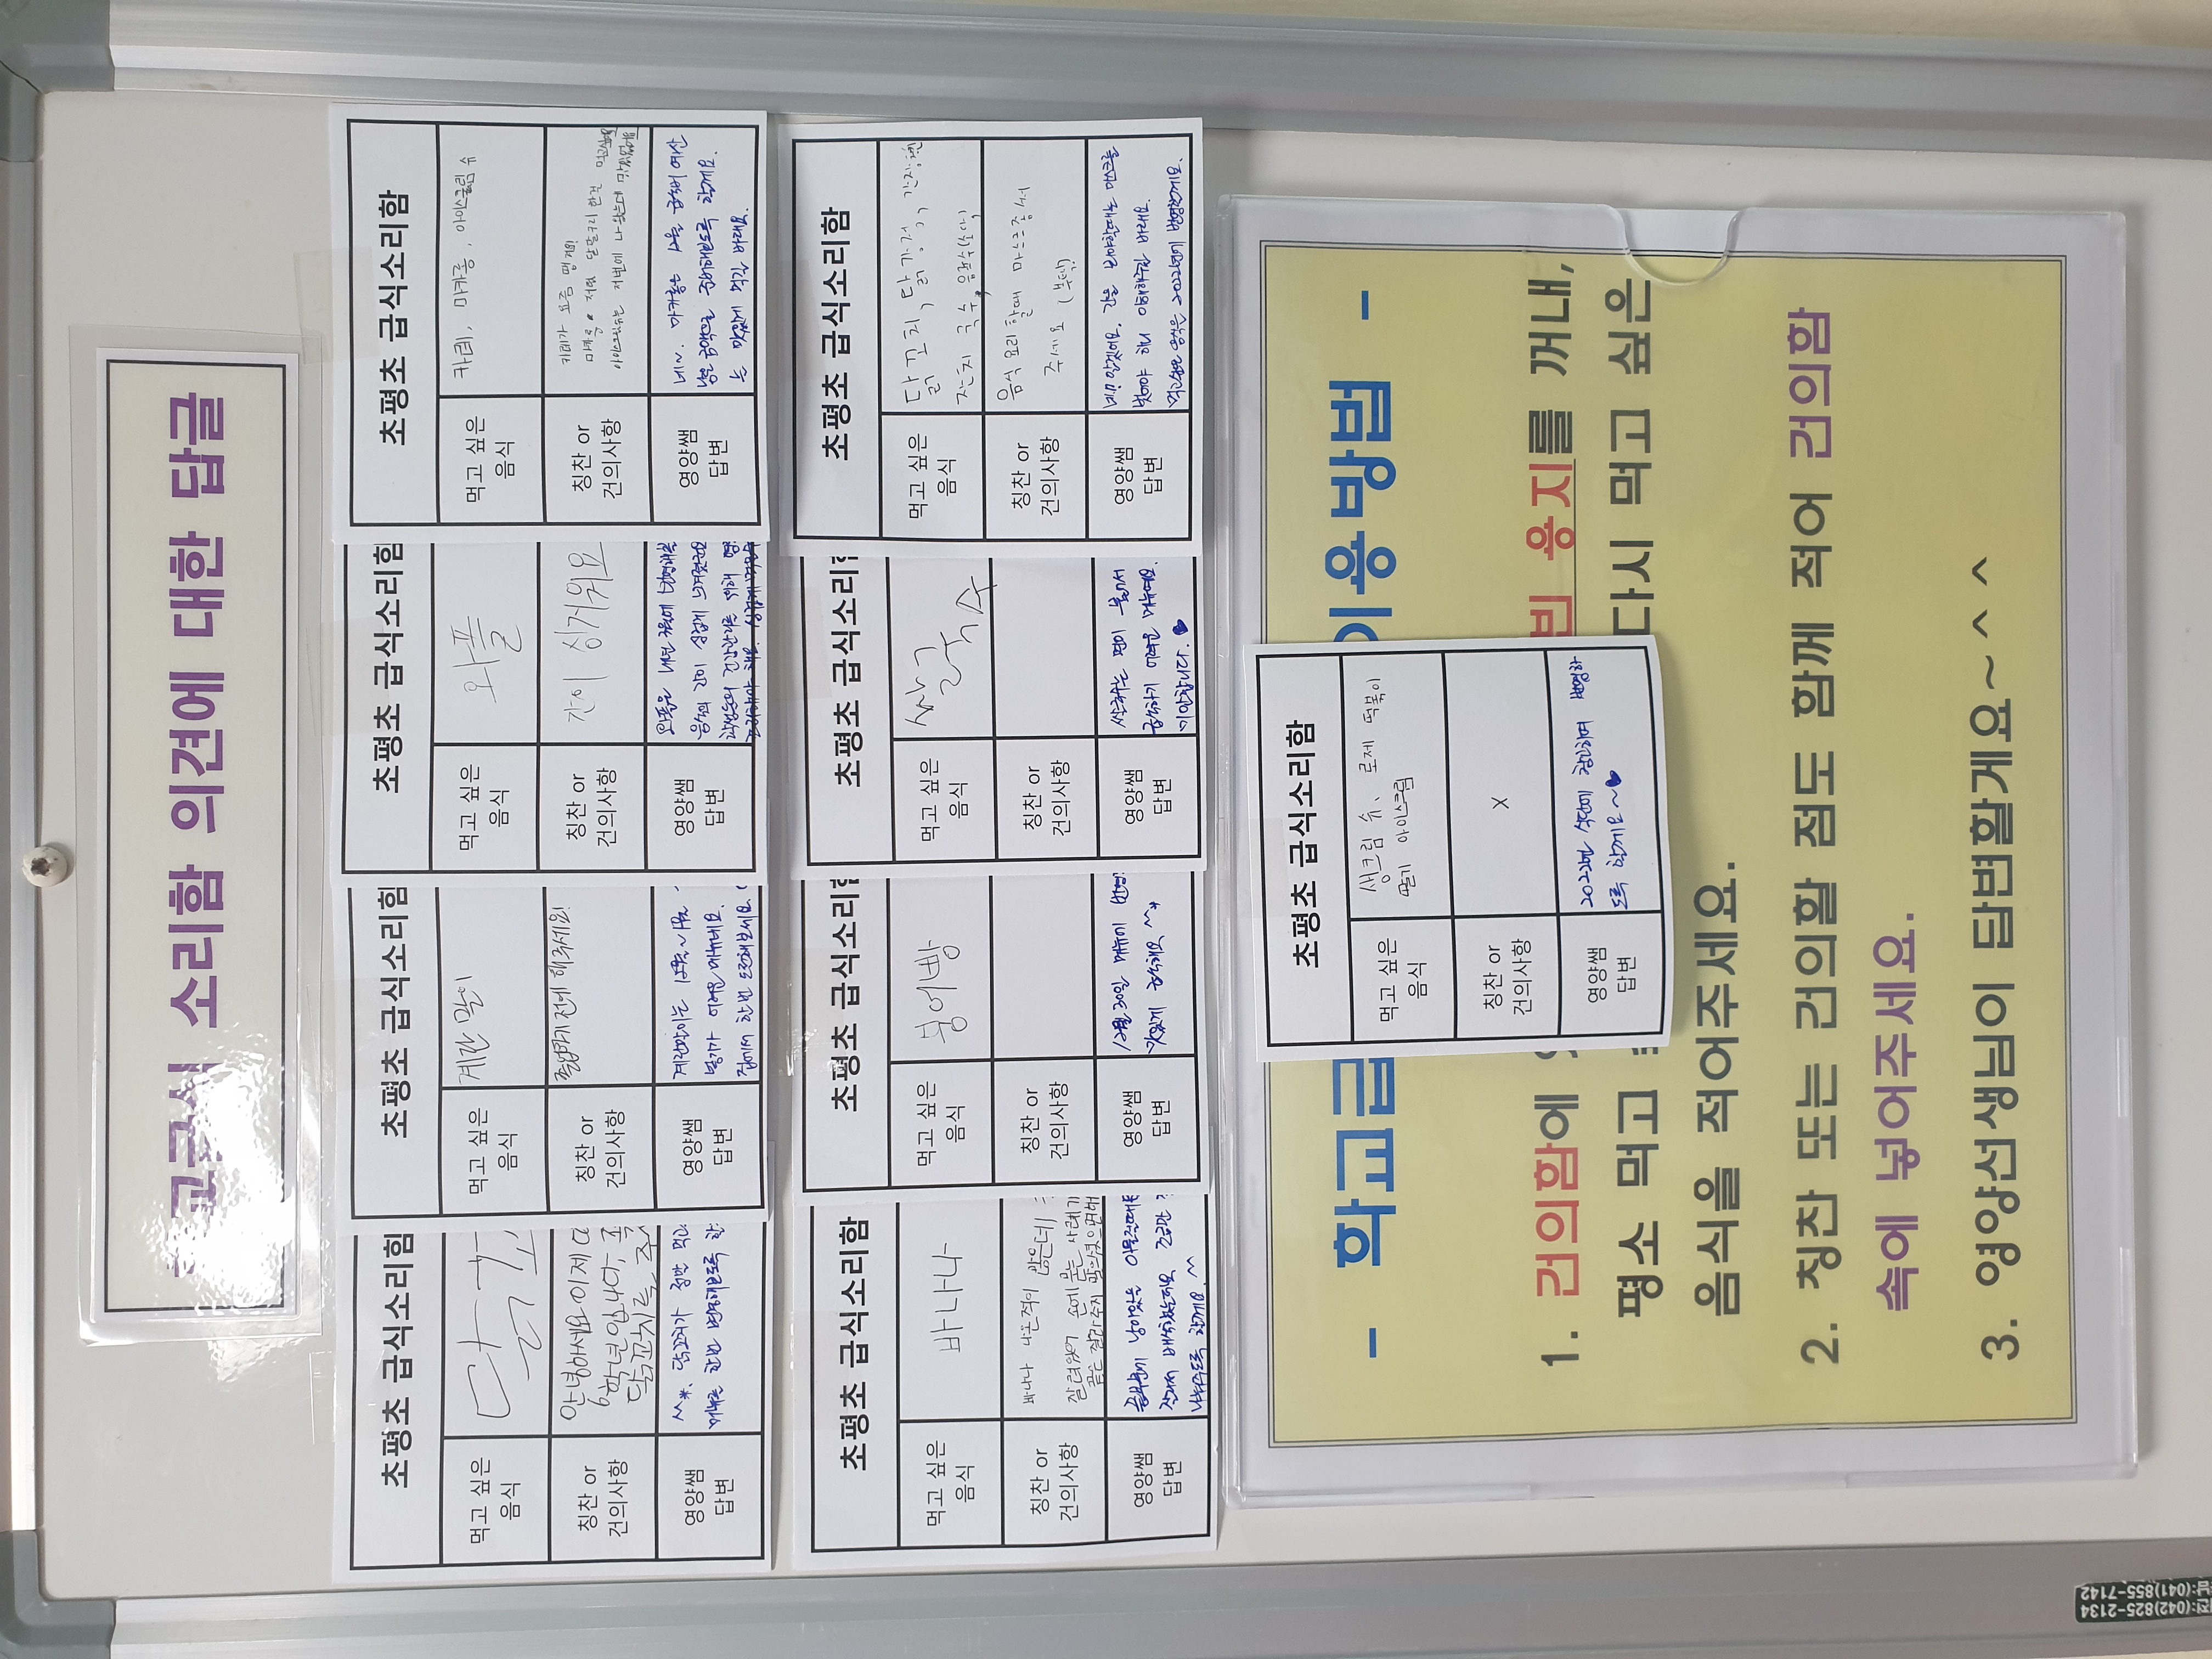 학교급식 소리함 의견에 대한 답글
초평초 급식소리함
먹고 싶은
음식
칭찬 or
건의사항
안녕하세요 이제
6학년입니다,
닭꼬치를
영양쌤
답변
^^*, 닭꼬치가 정말 먹고
메뉴로 한번 변동해보도록
초평초 급식소리함
먹고 싶은
음식
계란말이
칭찬 or
건의사항
졸업하기전에 해주세요!
영양쌤
답변
계란말이는
넣기가 어려운 메뉴네요.
집에서 한번 도전해보세요.
초평초 급식소리함
먹고 싶은
음식
와플
칭찬 or
건의사항
간이 싱거워요
영양쌤
답변
와플은 내년
음식의 간이 싱겁게 느껴졌군요
학생들의 건강관리를 위해
초평초 급식소리함
먹고 싶은
음식
카레, 마카롱, 아이스크림 슈
칭찬 or
건의사항
카레가 요즘 땡겨!
마카롱 저의
아이스크림슈는 저번에 나왔는데 맛있었음
영양쌤
답변
네~. 마카롱은 1월 급식에 예산
남은 금액으로 준비해보도록 할게요.
늘 맛있게 먹길 바래요.
초평초 급식소리함
먹고 싶은
음식
바나나
칭찬 or
건의사항
바나나 나온적이 많은데
잘려있어 손에
영양쌤
답변
나눠주도록 할게요.^^
초평초 급식소리함
먹고 싶은
음식
붕어빵
칭찬 or
건의사항
영양쌤
답변
12월 30일 메뉴에
맛있게 급식해요 ^^*
초평초 급식소리함
먹고 싶은
음식
쌀국수
칭찬 or
건의사항
영양쌤
답변
쌀국수는 면이 불어서
급식하기 어려운 메뉴예요.
미안합니다. ♥
초평초 급식소리함
먹고 싶은
음식
닭꼬치, 닭강정, 간장
잔치 국수, 음료수(소다)
칭찬 or
건의사항
음식 요리 할때 마스크 좀 써
주세요 (부탁)
영양쌤
답변
네!! 알겠어요. 간을 봐야할때는 마스크를
벗어야 하니 이해해주길 바래요.
먹고싶은 음식은 2022년에 반영할게요.
- 학교급 이용방법 -
1. 건의함에 빈 용지를 꺼내,
평소 먹고 다시 먹고 싶은
음식을 적어주세요.
2. 칭찬 또는 건의할 점도 함께 적어 건의함
속에 넣어주세요.
3. 영양선생님이 답변할게요~^^
초평초 급식소리함
먹고 싶은
음식
생크림 슈, 로제 떡볶이
딸기 아이스크림
칭찬 or
건의사항
X
영양쌤
답변
2022년 식단에 참고하여 반영하
도록 할게요~♥
(042)825-2134
(041)855-7142